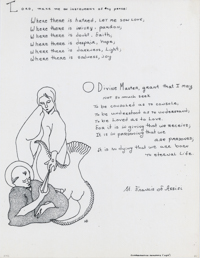 Lord, make me an instrument of thy peace:
Where there is hatred, let me sow love,
Where there is injury, pardon,
Where there is doubt, faith,
Where there is despair, hope,
Where there is darkness, light,
Where there is sadness, joy
O Divine Master, grant that I may
not so much seek
to be consoled as to console,
to be understood as to understand,
to be loved as to love
For it is in giving that we receive,
It is in pardoning that we
are pardoned,
it is in dying that we are born
to eternal life.
St. Francis of Assisi